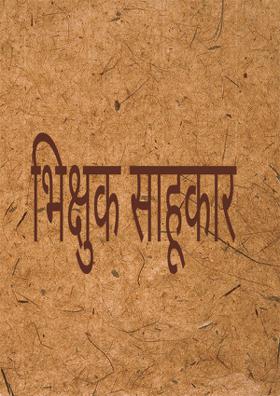 भिक्षुक साहूकार